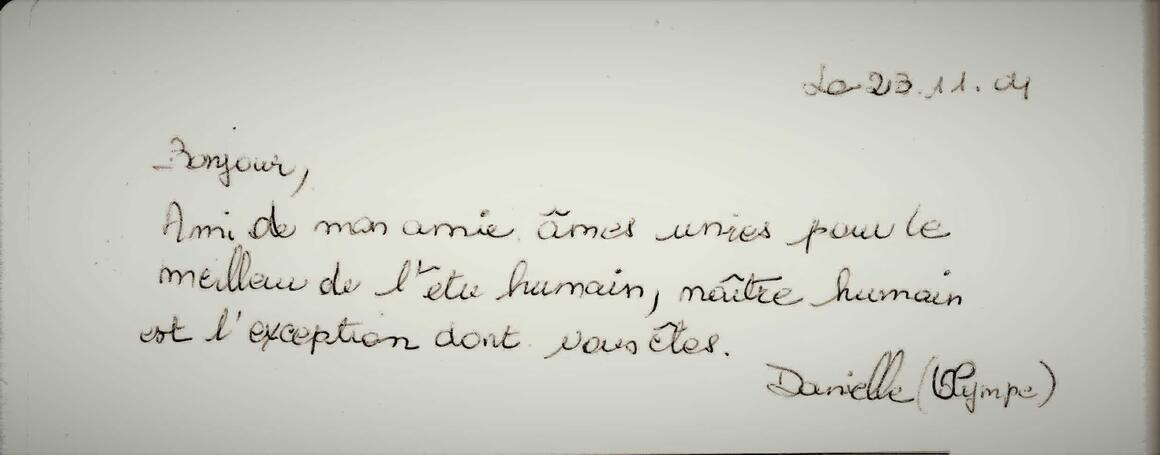 Le 23.11.04
Bonjour,
Ami de mon amie âmes unies pour le
meilleur de l'être humain, naître humain
est l'exception dont vous êtes.
Danielle (Olympe)